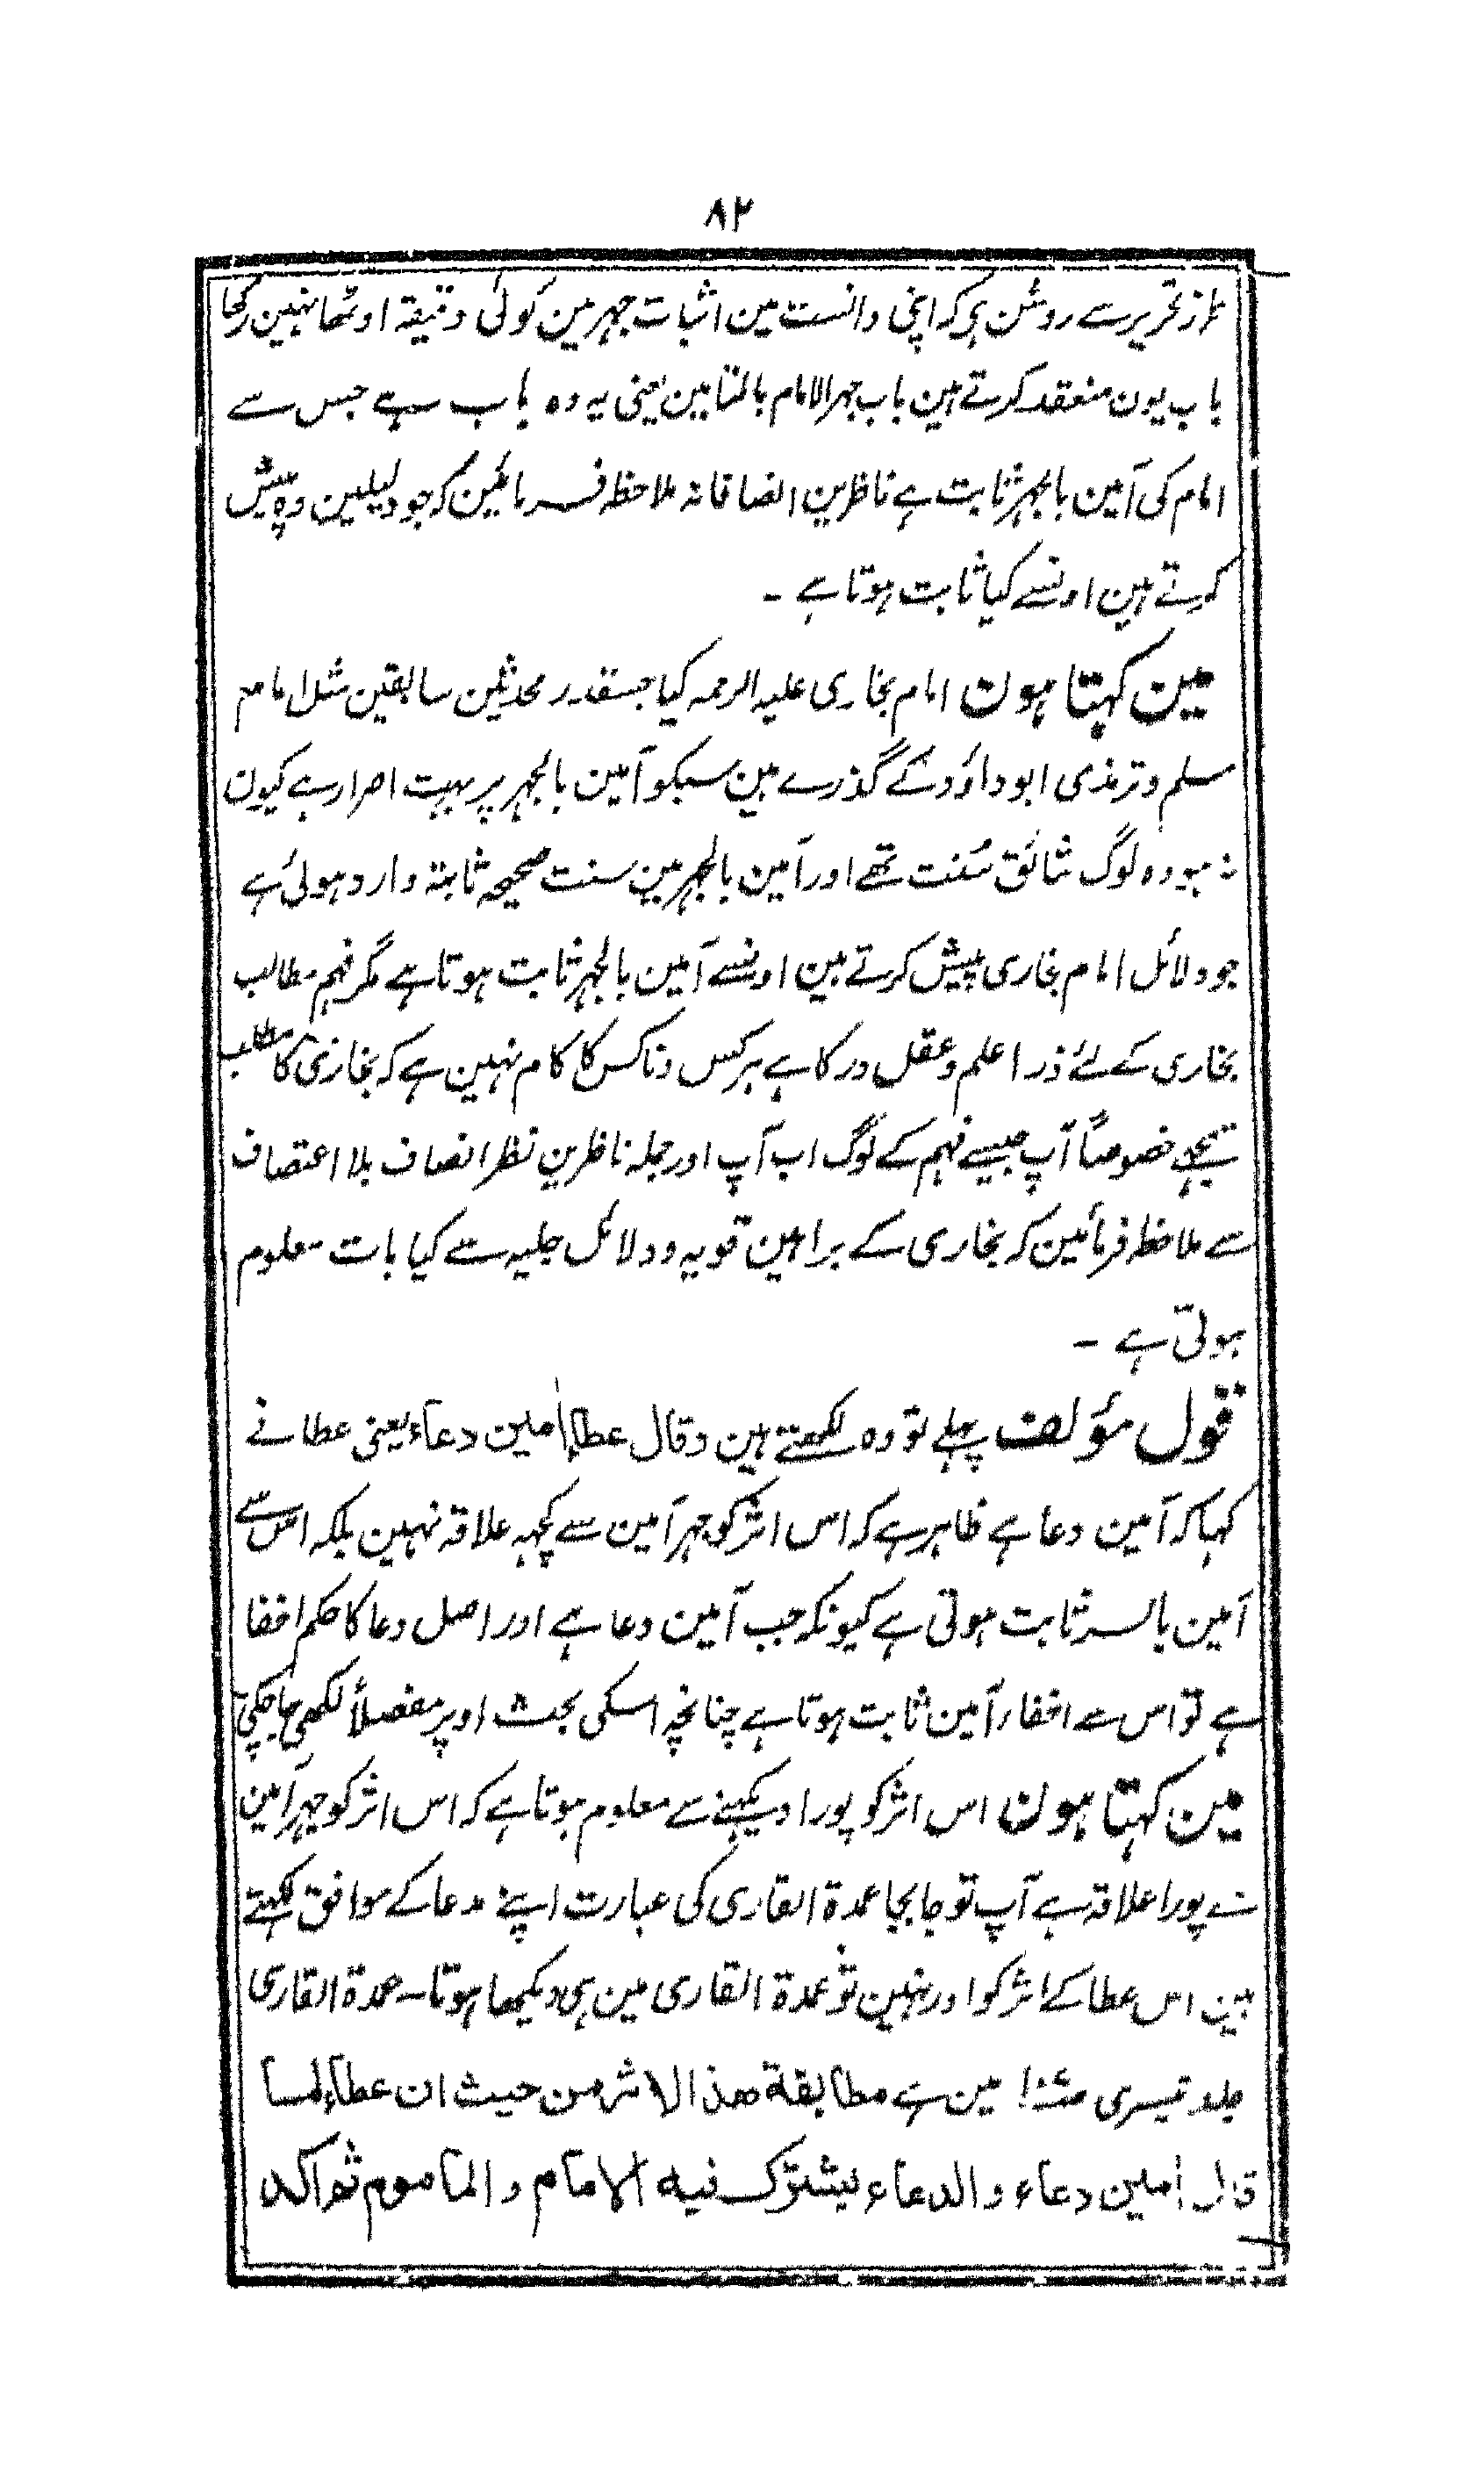 ۸۲
طرز تحریر سے روشن ہی کہ اپنی دانست مین اثبات جہر مین کوئی دقیقہ اوٹھا نہین رکھا
باب یون منعقد کرتے ہین باب جہر الامام بالتامین یعنی یہ وہ باب ہے جس سے
امام کی آمین بالجہر ثابت ہے ناظرین انصافانہ ملاحظہ فرمائین کہ جو دلیلین وہ پیش
کرتے ہین اونسے کیا ثابت ہوتا ہے ۔
مین کہتا ہون امام بخاری علیہ الرحمہ کیا جسقدر محدثین سابقین مثل امام
مسلم و ترمذی ابو داؤد کے گذرے ہین سبکو آمین بالجہر پر بہت اصرار ہے کیون
نہو وہ لوگ شائق سُنت تھے اور آمین بالجہر مین سنت صحیحہ ثابتہ وارد ہوئی ہے
جو دلائل امام بخاری پیش کرتے ہین اونسے آمین بالجہر ثابت ہوتا ہے مگر فہم مطالب
بخاری کے لئے ذرا علم و عقل درکا ہے ہر کس و ناکس کا کام نہین ہے کہ بخاری کا مطلب
سمجھے خصوصاً آپ جیسے فہم کے لوگ اب آپ اور جملہ ناظرین نظر انصاف بلا اعتصاف
سے ملاحظہ فرمائین کہ بخاری کے براہین قویہ و دلائل جلیہ سے کیا بات معلوم
ہوتی ہے ۔
قول مؤلف پہلے تو وہ لکھتے ہین وقال عطاء اٰمین دعاء یعنی عطا نے
کہا کہ آمین دعا ہے ظاہر ہے کہ اس اثر کو جہر آمین سے کچہہ علاقہ نہین بلکہ اس سے
آمین بالسر ثابت ہوتی ہے کیونکہ جب آمین دعا ہے اور اصل دعا کا حکم اخفا
ہے تو اس سے اخفاء آمین ثابت ہوتا ہے چنانچہ اسکی بحث اوپر مفصلاً لکھی جاچکی
مین کہتا ہون اس اثر کو پورا دیکہنے سے معلوم ہوتا ہے کہ اس اثر کو جہر آمین
سے پورا علاقہ ہے آپ تو جابجا عمدۃ القاری کی عبارت اپنے مدعا کے موافق لکہتے
ہین اس عطا کے اثر کو اور نہین تو عمدۃ القاری مین ہی دیکھا ہوتا ۔ عمدۃ القاری
جلد تیسری مین ہے مطابقة هذا الاثر من حيث ان عطاء لما
قال اٰمين دعاء والدعاء يشترك فيه الامام والماموم ثم اكد